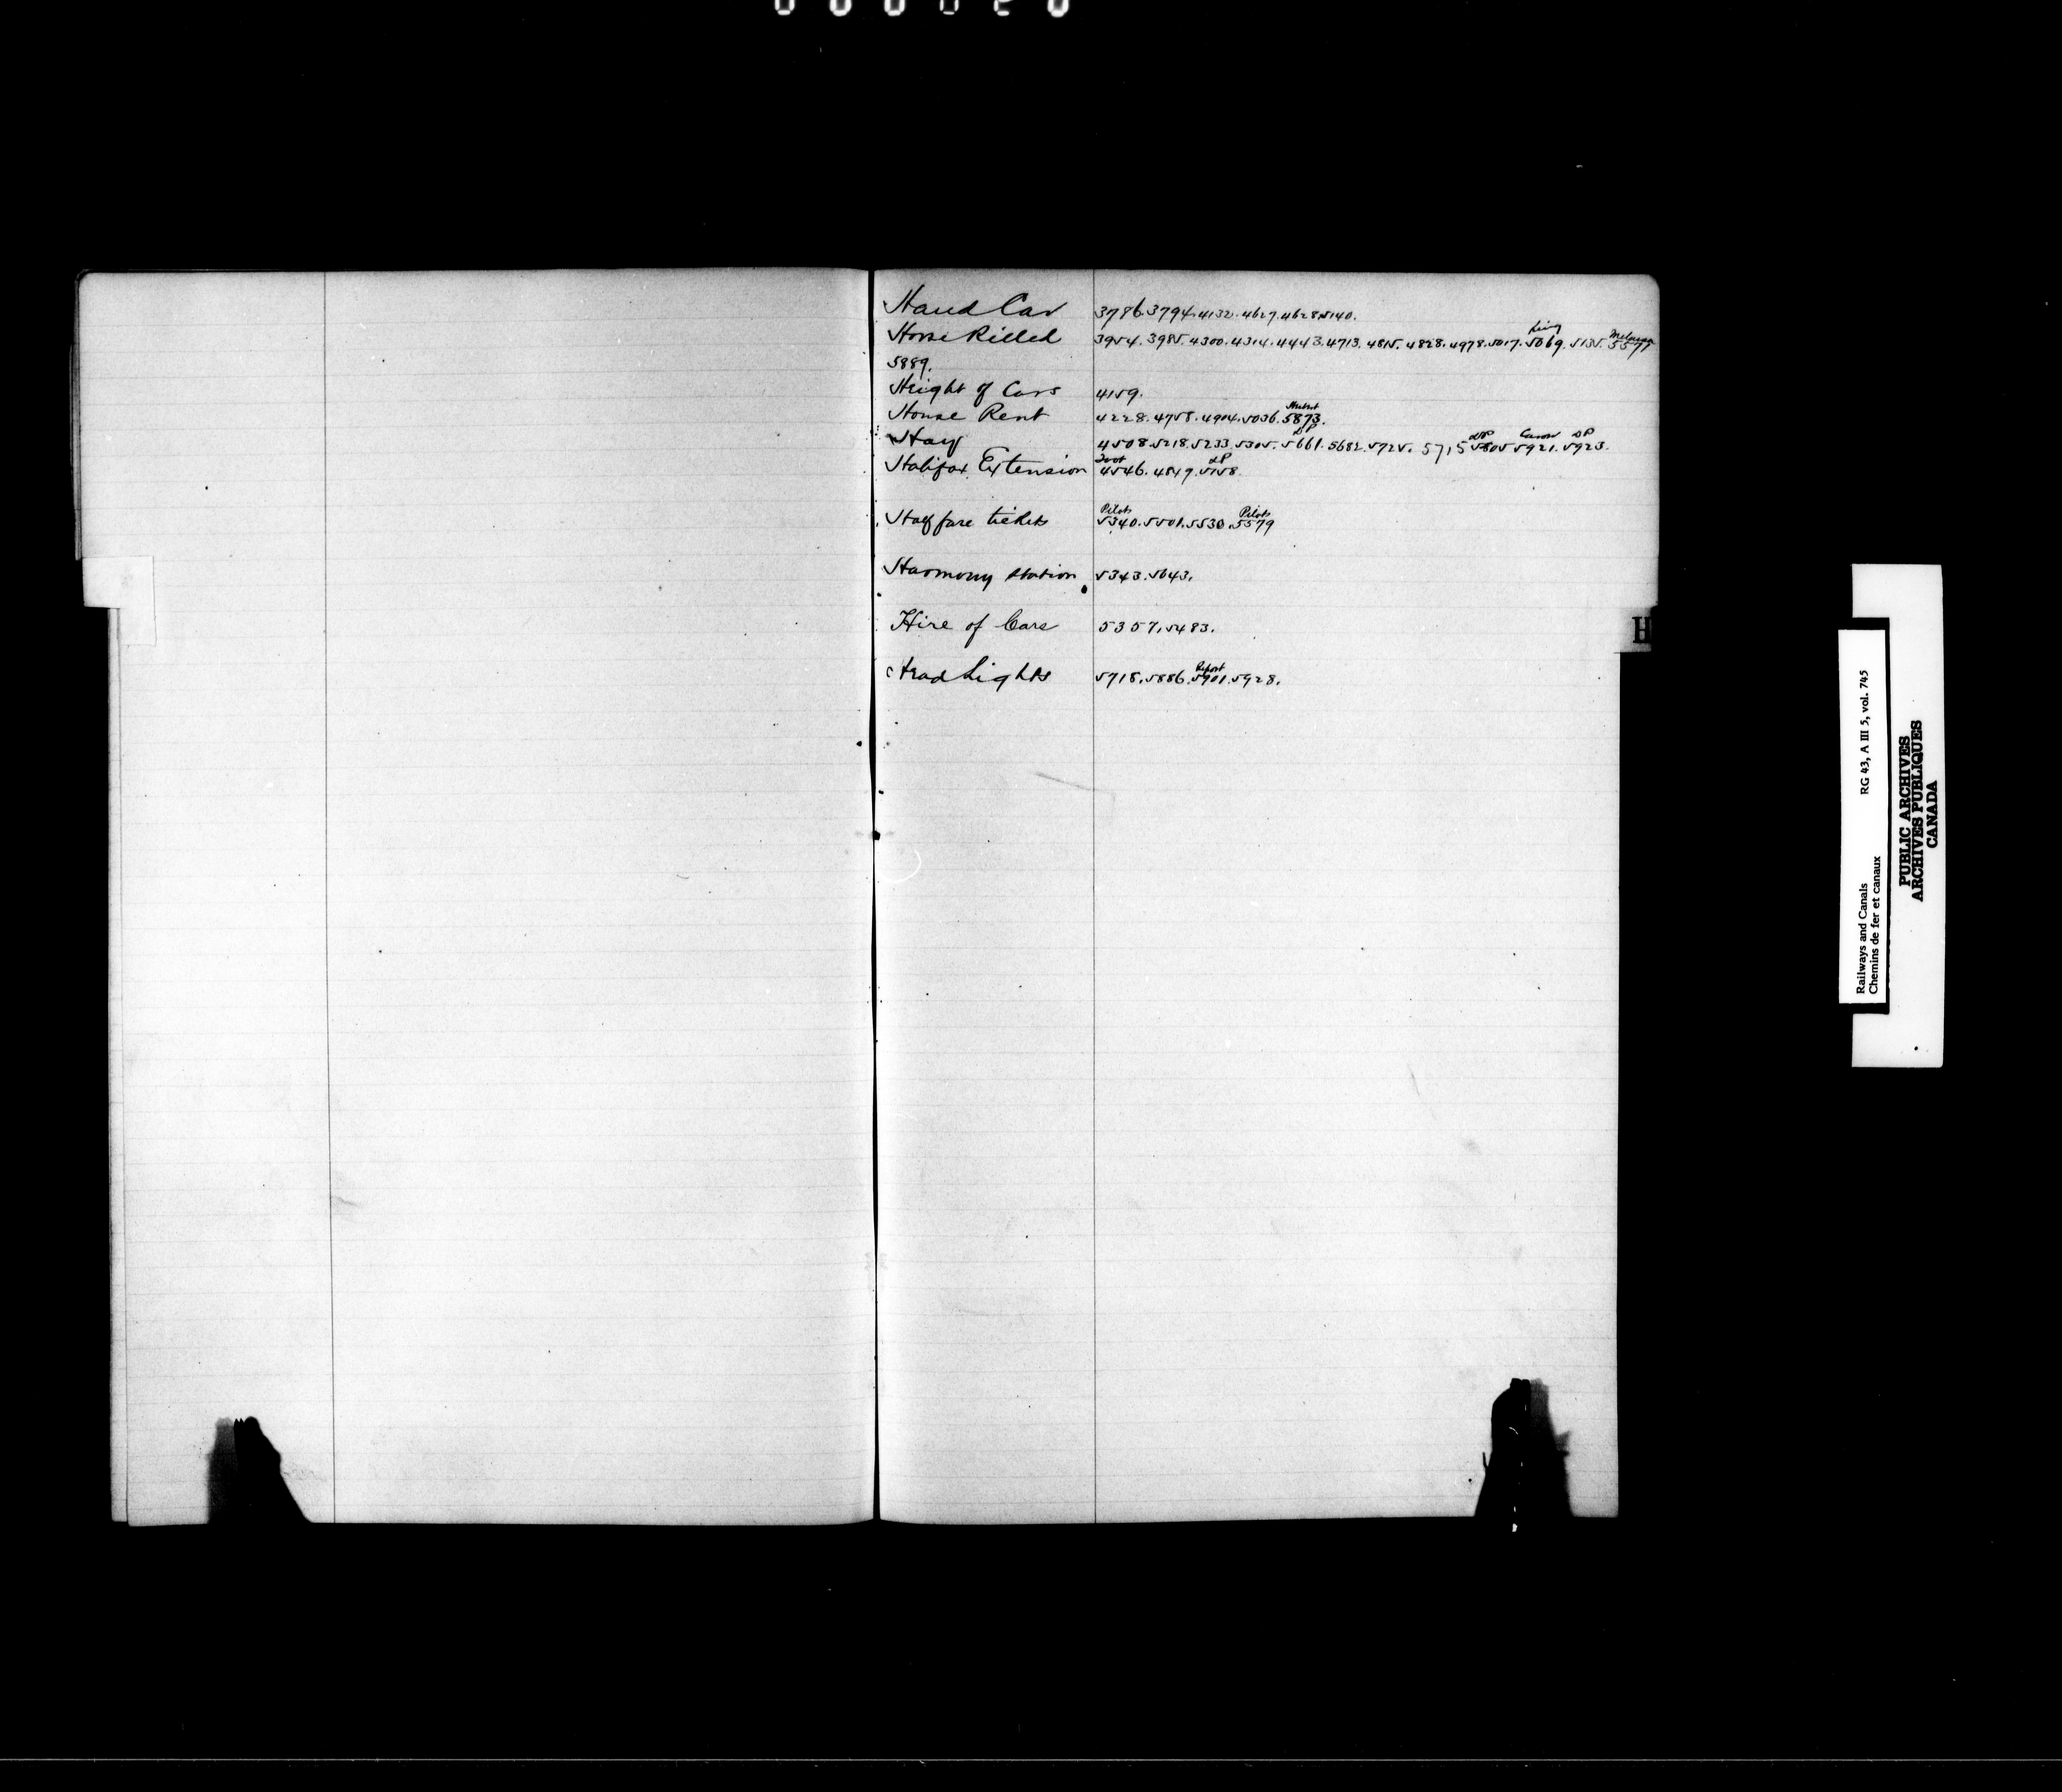 Hand Car 3786. 3794. 4132. 4627. 4628. 5140.
King
Horse Killed 3954. 3985. 4300. 4314. 4443. 4713. 4815. 4828. 4978. 5017. 5069. 5135. 5577
5889.
Height of Cars 4159.
House Rent 4228. 4758. 4904. 5036. 5873.
DP DP Caron DP
Hay 4508. 5218. 5233. 5305. 5661. 5682. 5725. 5715 5805 5921. 5923.
DP
Halifax Extension 4546. 4849. 5158.
Pilots Pilots
Half fare tickets 5340. 5501. 5530. 5579
Harmony Station 5343. 5643.
Hire of Cars 5357. 5483.
Report
Head Lights 5718. 5886. 5901. 5928.
H
Railways and Canals RG 43, A III 5, vol. 745
Chemins de fer et canaux
PUBLIC ARCHIVES
ARCHIVES PUBLIQUES
CANADA